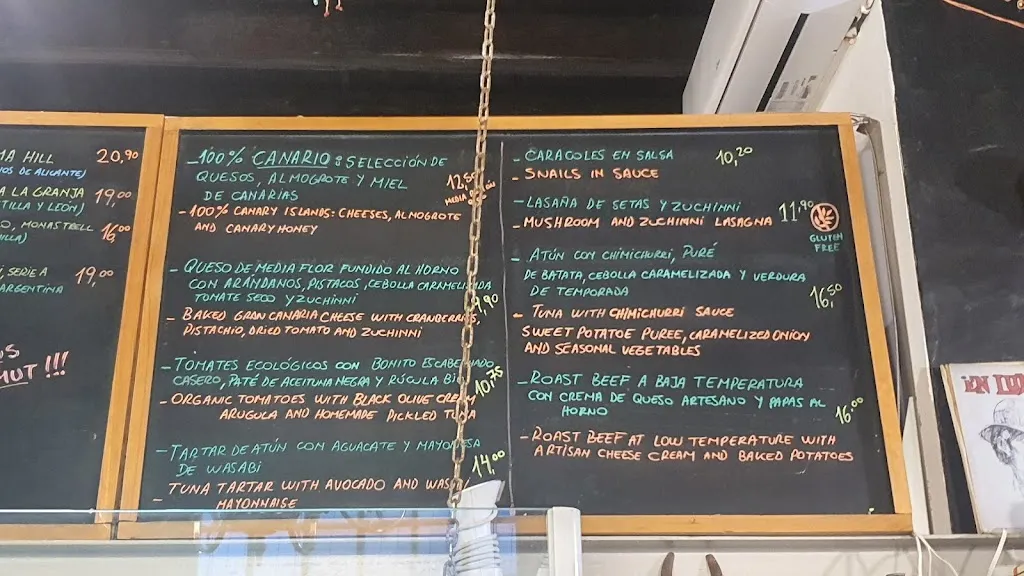 MA HILL 20,90
OS DE ALICANTE)
A LA GRANJA 19,00
TILLA Y LEÓN)
O, MONASTRELL 16,00
ILLA)
, SERIE A 19,00
ARGENTINA
US
MUT !!!
- 100% CANARIO: SELECCIÓN DE
QUESOS, ALMOGROTE Y MIEL
DE CANARIAS
12,50
MEDIA
- 100% CANARY ISLANDS: CHEESES, ALMOGROTE
AND CANARY HONEY
- QUESO DE MEDIA FLOR FUNDIDO AL HORNO
CON ARÁNDANOS, PISTACOS, CEBOLLA CARAMELIZADA
TOMATE SECO Y ZUCHINNI
9,90
- BAKED GRAN CANARIA CHEESE WITH CRANBERRIES,
PISTACHIO, DRIED TOMATO AND ZUCHINNI
- TOMATES ECOLÓGICOS CON BONITO ESCABECHADO
CASERO, PATÉ DE ACEITUNA NEGRA Y RÚCULA BIO
10,75
- ORGANIC TOMATOES WITH BLACK OLIVE CREAM
ARUGULA AND HOMEMADE PICKLED TUNA
- TARTAR DE ATÚN CON AGUACATE Y MAYONESA
DE WASABI
14,00
- TUNA TARTAR WITH AVOCADO AND WASABI
MAYONNAISE
- CARACOLES EN SALSA 10,20
- SNAILS IN SAUCE
- LASAÑA DE SETAS Y ZUCHINNI
- MUSHROOM AND ZUCHINNI LASAGNA 11,90
GLUTEN
FREE
- ATÚN CON CHIMICHURRI, PURÉ
DE BATATA, CEBOLLA CARAMELIZADA Y VERDURA
DE TEMPORADA
16,50
- TUNA WITH CHIMICHURRI SAUCE
SWEET POTATOE PUREE, CARAMELIZED ONION
AND SEASONAL VEGETABLES
- ROAST BEEF A BAJA TEMPERATURA
CON CREMA DE QUESO ARTESANO Y PAPAS AL
HORNO
16,00
- ROAST BEEF AT LOW TEMPERATURE WITH
ARTISAN CHEESE CREAM AND BAKED POTATOES